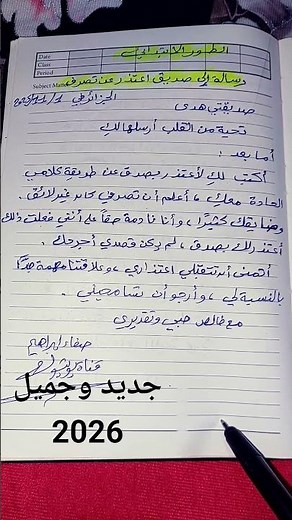 الطور الابتدائي
Date
Class
Period
Subject
رسالة إلى صديق اعتذر عن تصرف
الجزائر في
صديقتي هدى
تحية من القلب أرسلها لك
أما بعد :
أكتب لك لأعتذر بصدق عن طريقة كلامي
الحادة معك ، أعلم أن تصرفي كان غير لائق
وضايقك كثيرًا ، وأنا نادمة حقا على أنني فعلت ذلك
أعتذر لك بصدق ، لم يكن قصدي أجرحك .
أتمنى أن تتقبلي اعتذاري ، وعلاقتنا مهمة جدًا
بالنسبة لي ، وأرجو أن تسامحيني .
مع خالص حبي وتقديري
صفاء ابراهيم
قناة
جديد وجميل
2026